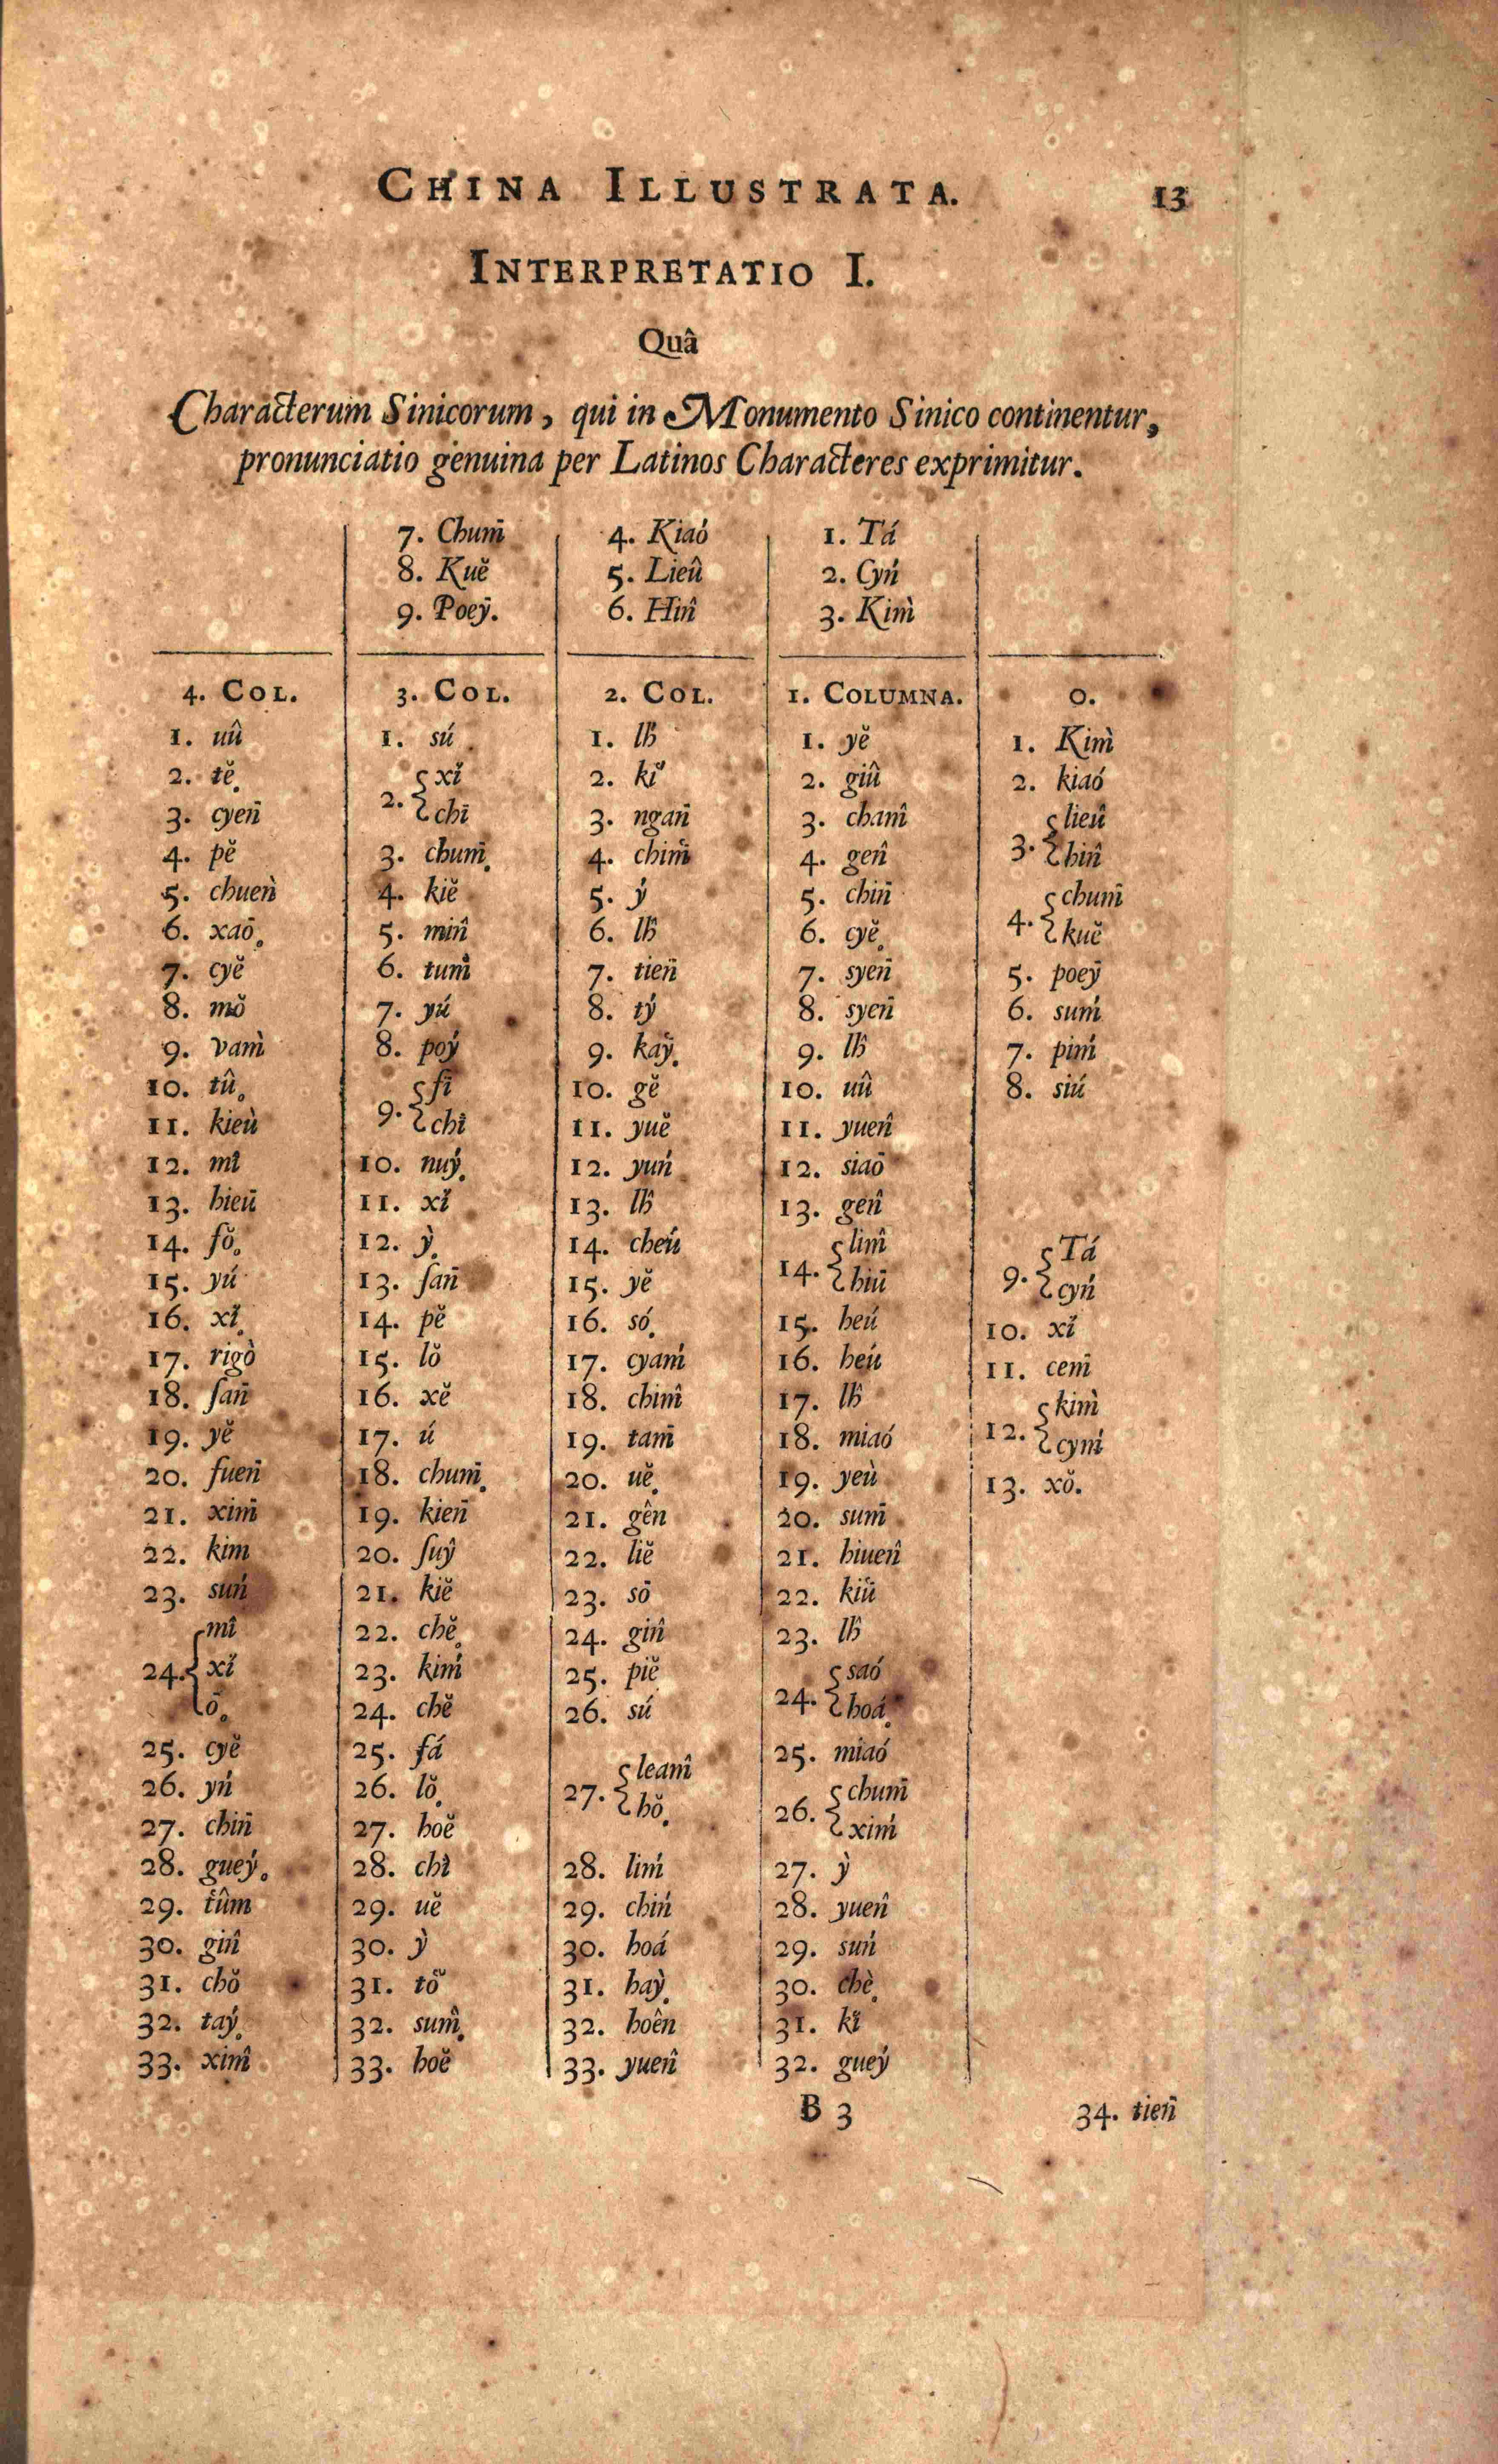 CHINA ILLUSTRATA. 13
INTERPRETATIO I.
Quâ
Characterum Sinicorum, qui in Monumento Sinico continentur,
pronunciatio genuina per Latinos Characteres exprimitur.
7. Chum̄
8. Kuĕ
9. Poeȳ.
4. Kiaó
5. Lieû
6. Hin̂
1. Tá
2. Cyń
3. Kim̀
4. COL.
1. uû
2. tĕ.
3. cyen̄
4. pĕ
5. chueǹ
6. xaō.
7. cyĕ
8. mŏ
9. vam̀
10. tû.
11. kieù
12. mî
13. hieū
14. fŏ.
15. yú
16. xĭ.
17. rigò
18. ſan̄
19. yĕ
20. fuen̄
21. xim̄
22. kim
23. suń
24. { mî
xĭ
ō.
25. cyĕ
26. yń
27. chin̄
28. gueý.
29. tûm
30. gin̂
31. chŏ
32. taý.
33. xim̂
3. COL.
1. sú
2. { xĭ
chī
3. chum̄.
4. kiĕ
5. min̂
6. tum̀
7. yú
8. poý
9. { ſī
chì
10. nuý.
11. xĭ
12. ỳ.
13. ſan̄
14. pĕ
15. lŏ
16. xĕ
17. ú
18. chum̄.
19. kien̄
20. ſuŷ
21. kiĕ
22. chĕ.
23. kiḿ
24. chĕ
25. fá
26. lŏ.
27. hoĕ
28. chì
29. uĕ
30. ỳ
31. tŏ
32. sum̂.
33. hoĕ
2. COL.
1. lĥ
2. kĭ
3. ngan̄
4. chim̄
5. ý
6. lĥ
7. tien̄
8. tý
9. kaȳ.
10. gĕ
11. yuĕ
12. yuń
13. lĥ
14. cheú
15. yĕ
16. só.
17. cyaḿ
18. chim̂
19. tam̄
20. uĕ.
21. gên
22. liĕ
23. sō
24. gin̂
25. piĕ
26. sú
27. { leam̂
hŏ.
28. liḿ
29. chiń
30. hoá
31. haỳ.
32. hoên
33. yuen̂
1. COLUMNA.
1. yĕ
2. giû
3. cham̂
4. gen̂
5. chin̄
6. cyĕ.
7. syen̄
8. syen̄
9. lĥ
10. uû
11. yuen̂
12. siaō
13. gen̂
14. { lim̂
hiū
15. heú
16. heú
17. lĥ
18. miaó
19. yeù
20. sum̄
21. hiuen̂
22. kiū
23. lĥ
24. { saó
hoá.
25. miaó
26. { chum̄
xiḿ
27. ỳ
28. yuen̂
29. suń
30. chè.
31. kĭ
32. gueý
0.
1. Kim̀
2. kiaó
3. { lieû
hin̂
4. { chum̄
kuĕ
5. poeȳ
6. suḿ
7. piḿ
8. siú
9. { Tá
cyń
10. xĭ
11. cem̄
12. { kim̀
cyḿ
13. xŏ.
B 3 34. tien̄